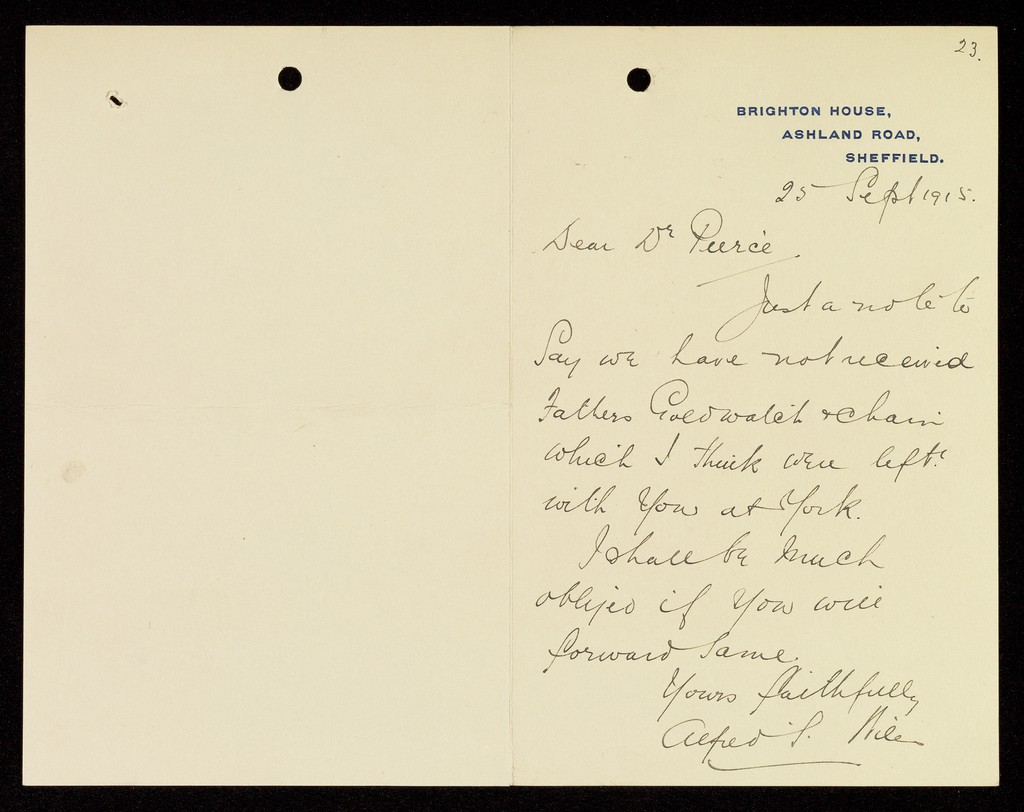 23.
BRIGHTON HOUSE,
ASHLAND ROAD,
SHEFFIELD.
25 Sept 1915.
Dear Dr Pierce
Just a note to
Say we have not received
Fathers Gold watch & chain
which I think were left
with You at York.
I shall be much
obliged if You will
forward Same.
Yours faithfully
Alfred S.